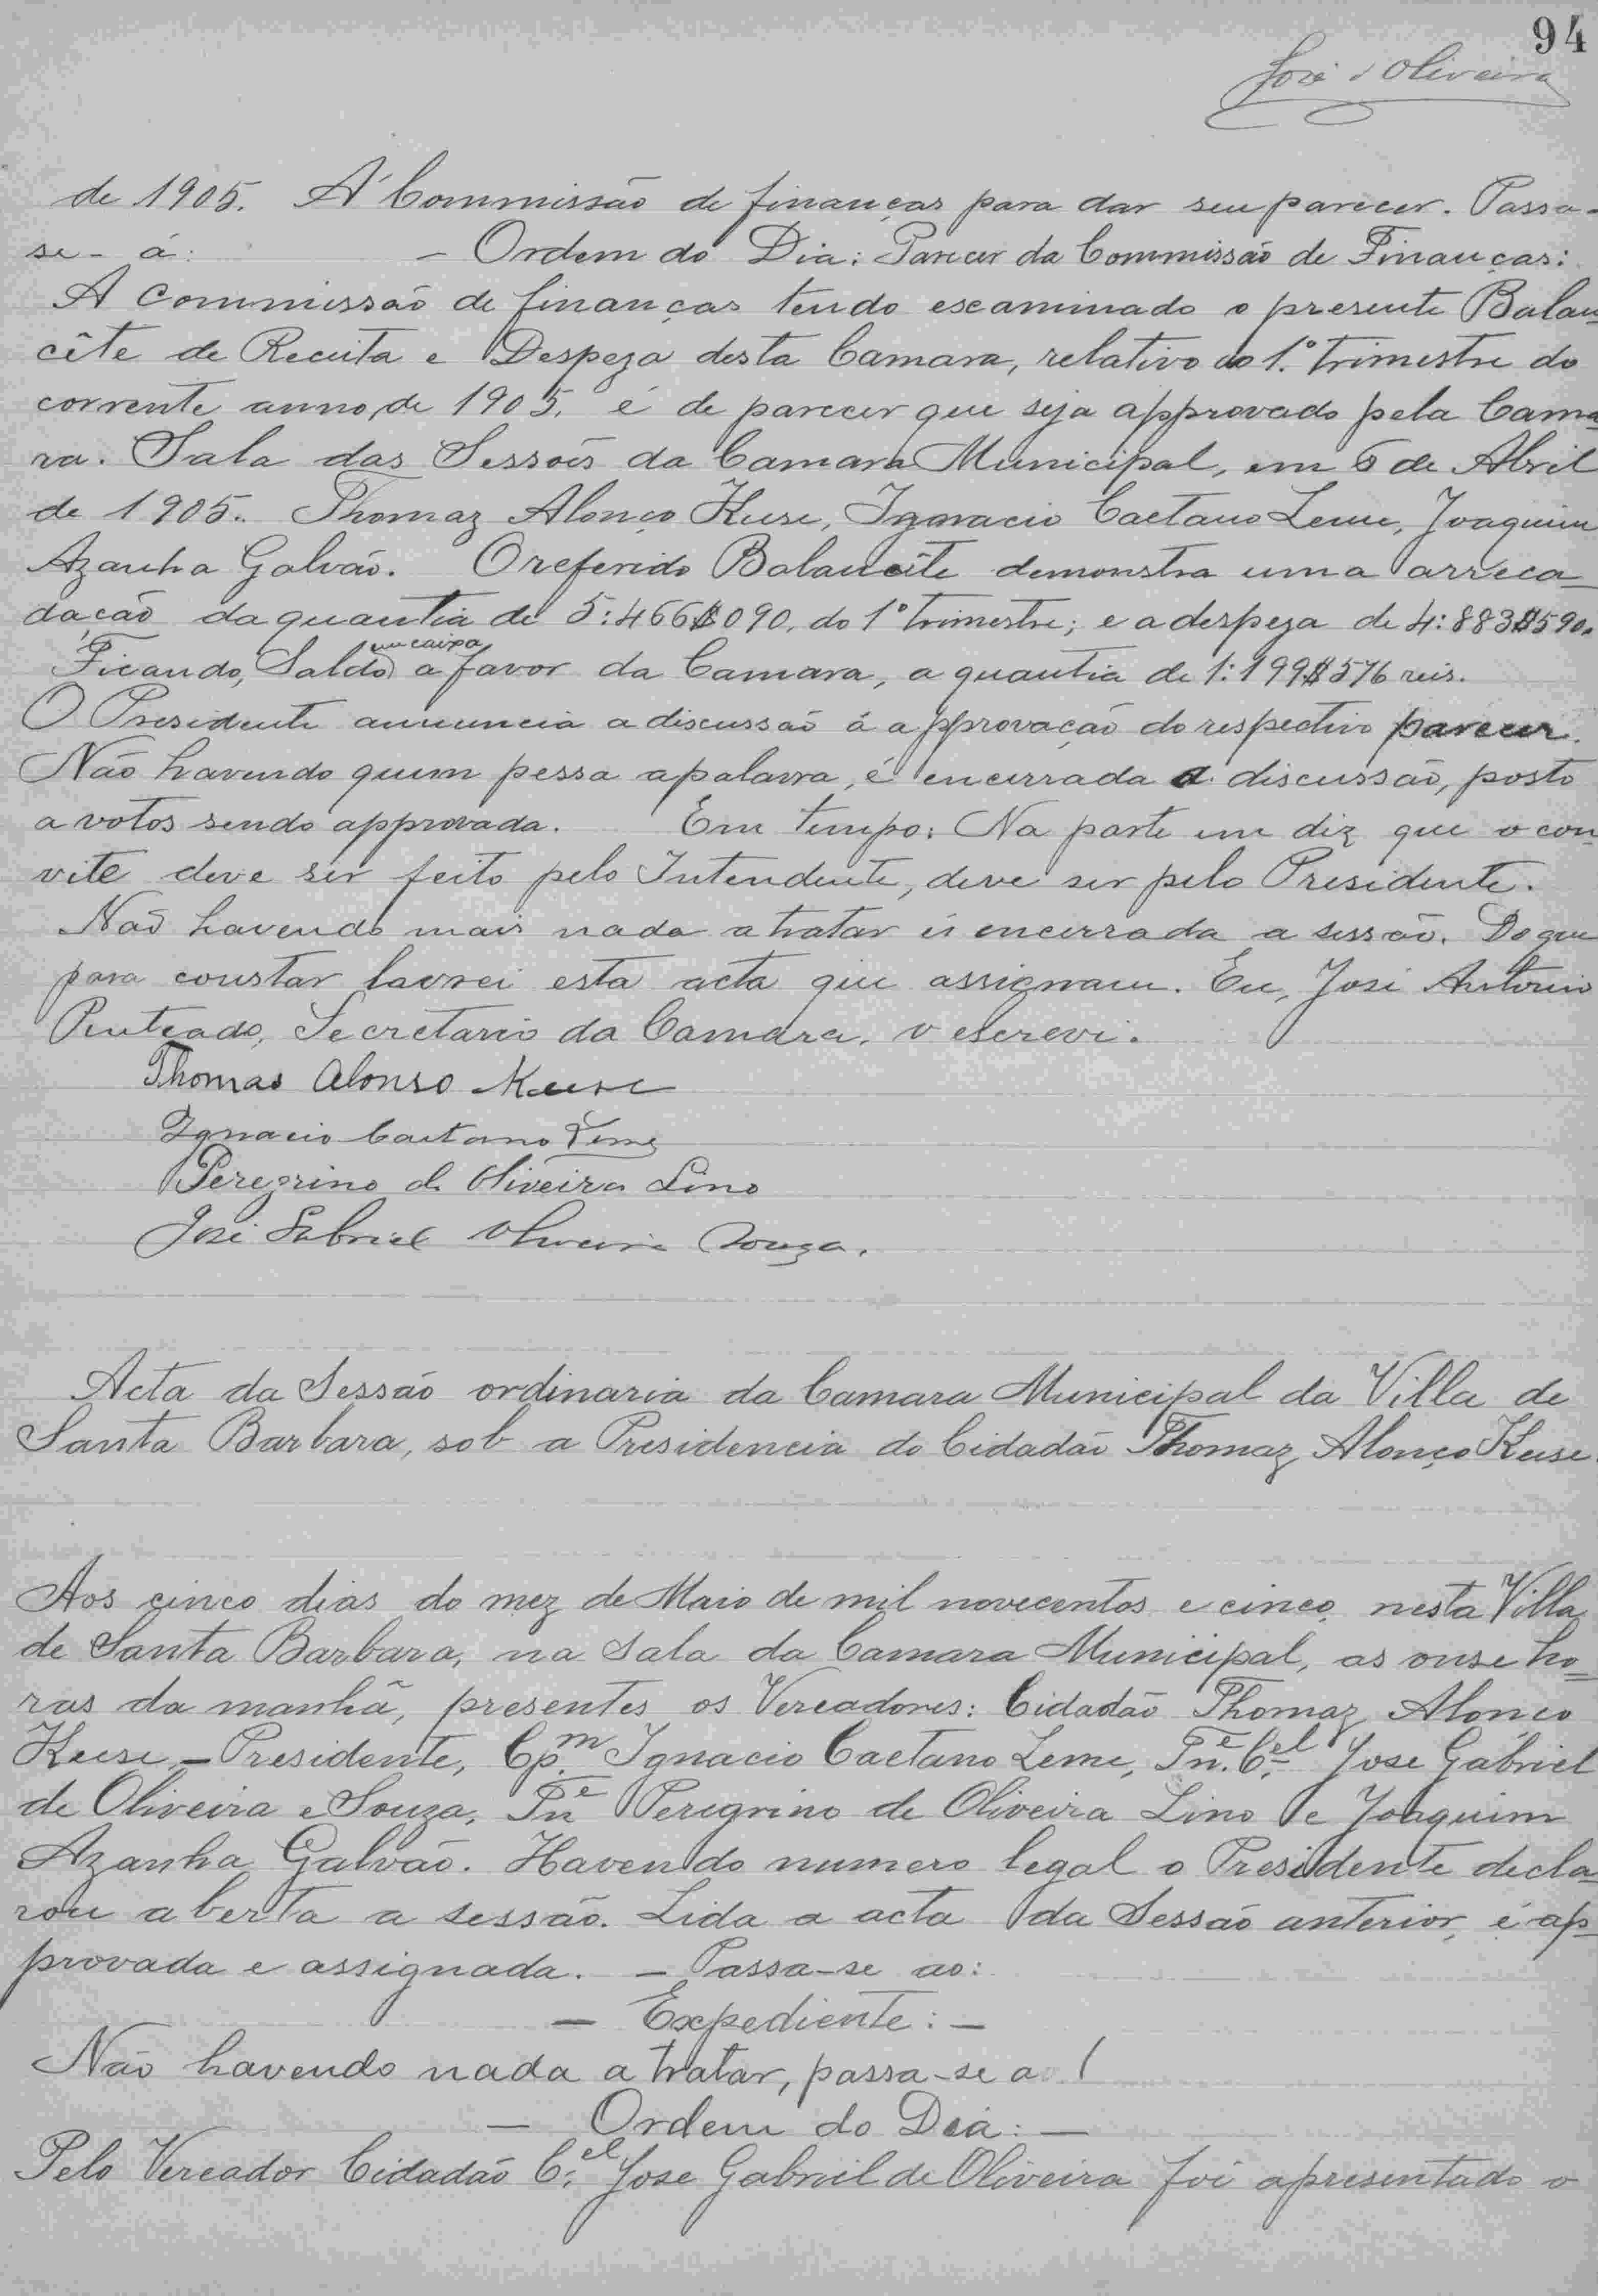 94
José d'Oliveira
de 1905. A' Commissão de finanças para dar seu parecer. Passa-
se-á: — Ordem do Dia: Parecer da Commissão de Finanças:
A Commissão de finanças tendo escaminado o presente Balan-
cête de Receita e Despeza desta Camara, relativo ao 1.º trimestre do
corrente anno, de 1905, é de parecer que seja approvado pela Cama-
ra. Sala das Sessões da Camara Municipal, em 6 de Abril
de 1905. Thomaz Alonço Keese, Ignacio Caetano Leme, Joaquim
Azanha Galvão. O referido Balancête demonstra uma arreca-
dação da quantia de 5:466$090, do 1º trimestre; e a despeza de 4:883$590.
Ficando, Saldo em caixa a favor da Camara, a quantia de 1:199$576 reis.
O Presidente annuncia a discussão á approvação do respectivo parecer.
Não havendo quem pessa a palavra, é encerrada a discussão, posto
a votos sendo approvada. Em tempo: Na parte em diz que o con-
vite deve ser feito pelo Intendente, deve ser pelo Presidente.
Não havendo mais nada a tratar é encerrada a sessão. Do que
para constar lavrei esta acta que assignam. Eu, José Antonio
Penteado, Secretario da Camara, o escrevi.
Thomas Alonso Keese
Ignacio Caetano Leme
Peregrino de Oliveira Lino
José Gabriel Oliveira Souza.
Acta da Sessão ordinaria da Camara Municipal da Villa de
Santa Barbara, sob a Presidencia do Cidadão Thomaz Alonço Keese.
Aos cinco dias do mez de Maio de mil novecentos e cinco, nesta Villa
de Santa Barbara, na Sala da Camara Municipal, as onse ho-
ras da manhã, presentes os Vereadores: Cidadão Thomaz Alonço
Keese — Presidente, Cp.m Ignacio Caetano Leme, Tn.e C.el Jose Gabriel
de Oliveira e Souza, Tn.e Peregrino de Oliveira Lino e Joaquim
Azanha Galvão. Havendo numero legal o Presidente decla-
rou aberta a sessão. Lida a acta da Sessão anterior, é ap-
provada e assignada. — Passa-se ao:
— Expediente: —
Não havendo nada a tratar, passa-se a
— Ordem do Dia: —
Pelo Vereador Cidadão C.el Jose Gabriel de Oliveira foi apresentado o